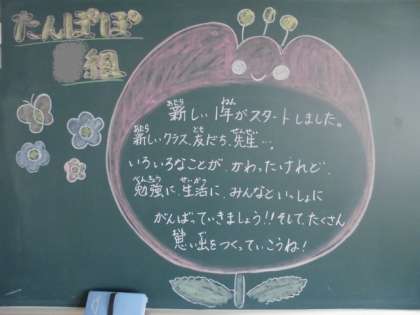 たんぽぽ
組
新しい1年がスタートしました。
新しいクラス、友だち、先生…。
いろいろなことが、かわったけれど、
勉強に、生活に、みんなといっしょに
がんばっていきましょう!!そして、たくさん
思い出をつくっていこうね!